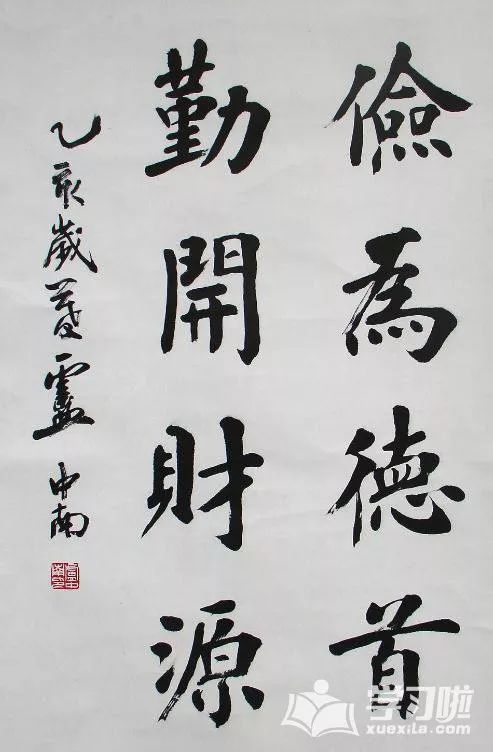 儉為德首
勤開財源
乙亥歲 盧中南
学习啦
xuexila.com